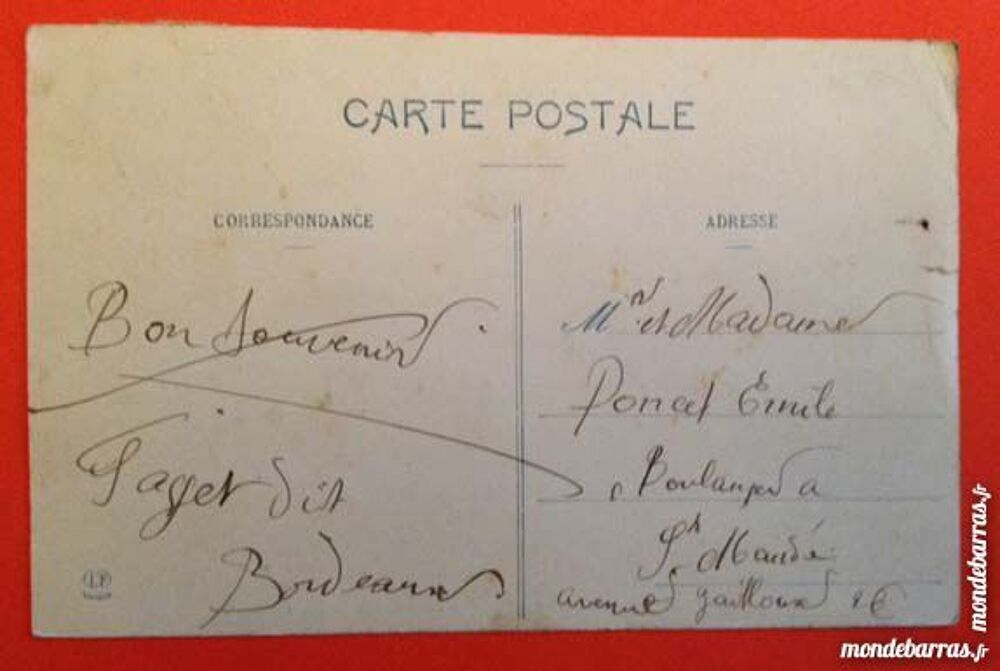 CARTE POSTALE
CORRESPONDANCE
Bon Souvenir
dit
Bordeaux
ADRESSE
Mr et Madame
Poncet Émile
Boulanger a
St Mandé
avenue
LF
mondebarras.fr
mondebarras.fr